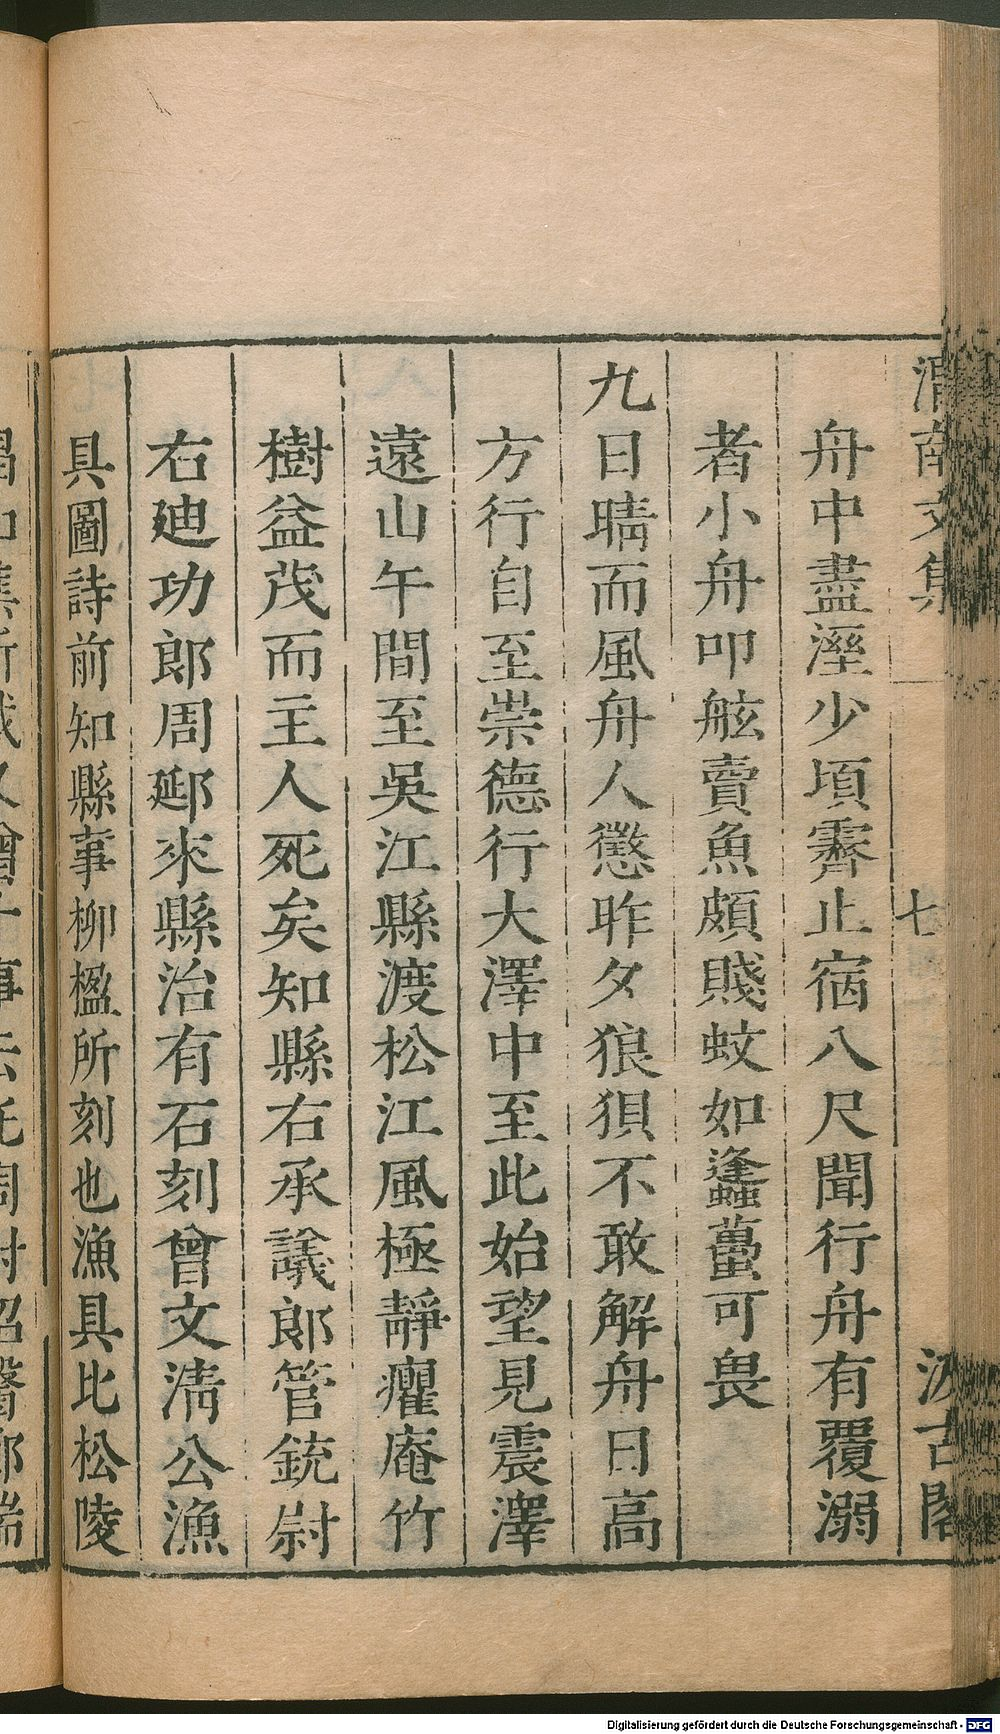 渭南文集
七
汲古閣
舟中盡溼少頃霽止宿八尺聞行舟有覆溺
者小舟叩舷賣魚頗賤蚊如蠭蠆可畏
九日晴而風舟人懲昨夕狼狽不敢解舟日高
方行自至崇德行大澤中至此始望見震澤
遠山午間至吳江縣渡松江風極靜癯庵竹
樹益茂而主人死矣知縣右承議郎管銃尉
右廸功郎周郔來縣治有石刻曾文清公漁
具圖詩前知縣事柳楹所刻也漁具比松陵
Digitalisierung gefördert durch die Deutsche Forschungsgemeinschaft - DFG